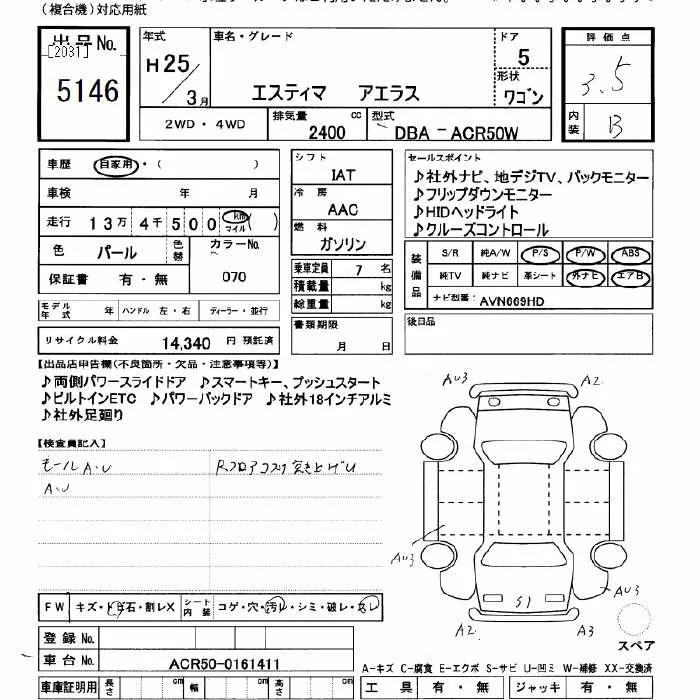 （複合機）対応用紙
出品No. [2031] 5146
年式 H25/3月
車名・グレード エスティマ アエラス
ドア 5
形状 ワゴン
評価点 3.5
内装 B
2WD・4WD
排気量 2400 cc
型式 DBA-ACR50W
車歴 自家用・( )
車検 年 月
走行 13万4千500 km マイル ( )
色 パール 色替 カラーNo. 070
保証書 有・無
モデル年式 年 ハンドル 左・右 ディーラー・並行
リサイクル料金 14,340 円 預託済
シフト IAT
冷房 AAC
燃料 ガソリン
乗車定員 7 名
積載量 kg
総重量 kg
書類期限 月 日
セールスポイント
♪社外ナビ、地デジTV、バックモニター
♪フリップダウンモニター
♪HIDヘッドライト
♪クルーズコントロール
装備品 S/R 純A/W P/S P/W ABS
純TV 純ナビ 革シート 外ナビ エアB
ナビ型番： AVN669HD
後日品
【出品店申告欄(不良箇所・欠品・注意事項等)】
♪両側パワースライドドア ♪スマートキー、プッシュスタート
♪ビルトインETC ♪パワーバックドア ♪社外18インチアルミ
♪社外足廻り
【検査員記入】
モールA・U
A・U
AU3 A2
AU3
AU3
S1
A2 A3
スペア
FW キズ・トビ石・割レX シート内装 コゲ・穴・汚レ・シミ・破レ・スレ
登録No.
車台No. ACR50-0161411
車庫証明用 長さ cm 幅 cm 高さ cm
A-キズ C-腐食 E-エクボ S-サビ U-凹ミ W-補修 XX-交換済
工具 有・無 ジャッキ 有・無